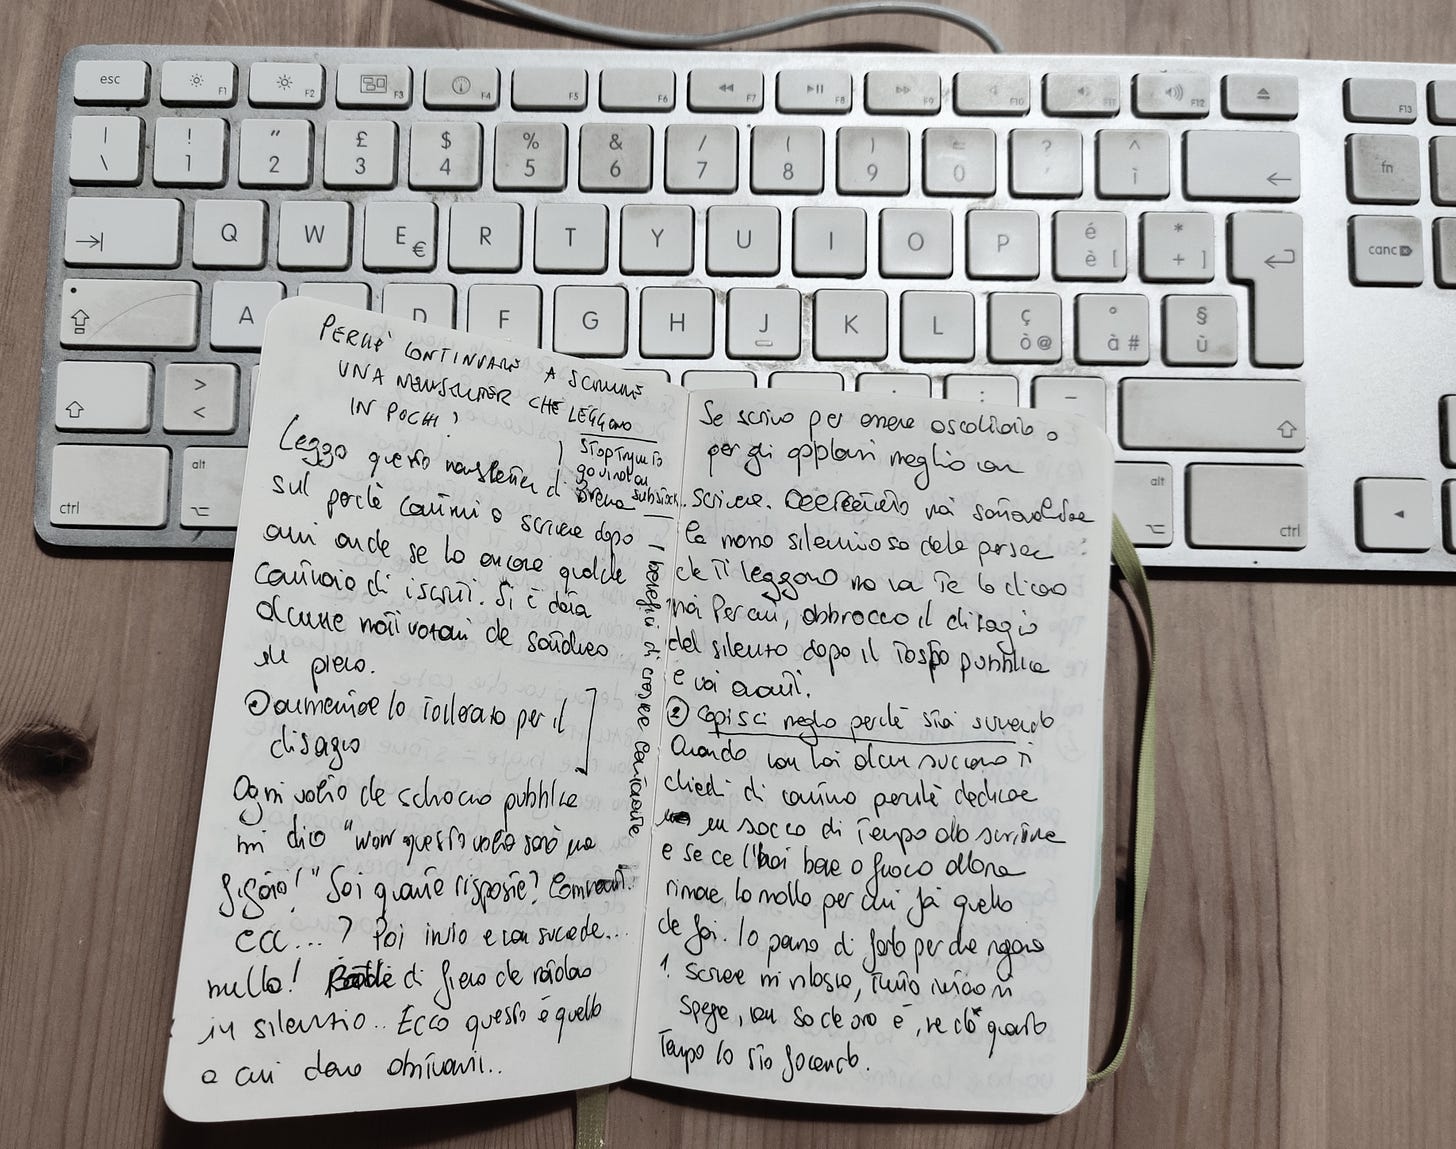 esc F1 F2 F3 F4 F5 F6 F7 F8 F9 F10 F11 F12 F13
| \ ! 1 " 2 £ 3 $ 4 % 5 & 6 / 7 ( 8 ) 9 = 0 ? ' ^ ì fn
Q W E € R T Y U I O P é è [ * + ] canc
A D F G H J K L ç ò @ ° à # § ù
> <
ctrl alt alt ctrl
PERCHÉ CONTINUARE A SCRIVERE
UNA NEWSLETTER CHE LEGGONO
IN POCHI?
Leggo questa newsletter di
substack.
sul perché continui a scrivere dopo
anni anche se ho ancora qualche
centinaio di iscritti. Si è data
alcune motivazioni che condivido
in pieno.
① aumentare la tolleranza per il
disagio
Ogni volta che schiaccio pubblica
mi dico "wow questa volta sarà una
figata!" Sai quante risposte? Commenti.
ecc...? Poi invio e non succede...
nulla! di che
in silenzio.. Ecco questo è quello
a cui devo abituarmi..
I benefici di creare
Se scrivo per essere ascoltato o
per gli applausi meglio non
scrivere. mai sottovalutare
la silenziosa delle persone
che ti leggono ma non te lo dicono
mai Per cui, abbraccio il disagio
del silenzio dopo il tasto pubblica
e vai avanti.
② Capisci meglio perché stai scrivendo
Quando non hai alcun successo ti
chiedi di continuo perché dedicare
un sacco di tempo alla scrittura
e se ce l'hai bene a fuoco allora
rimane la molla per cui fai quello
che fai. Io penso di farlo per due ragioni
1. Scrivere mi rilassa, tutto intorno si
spegne, non so che ora è, né da quanto
tempo lo sto facendo.